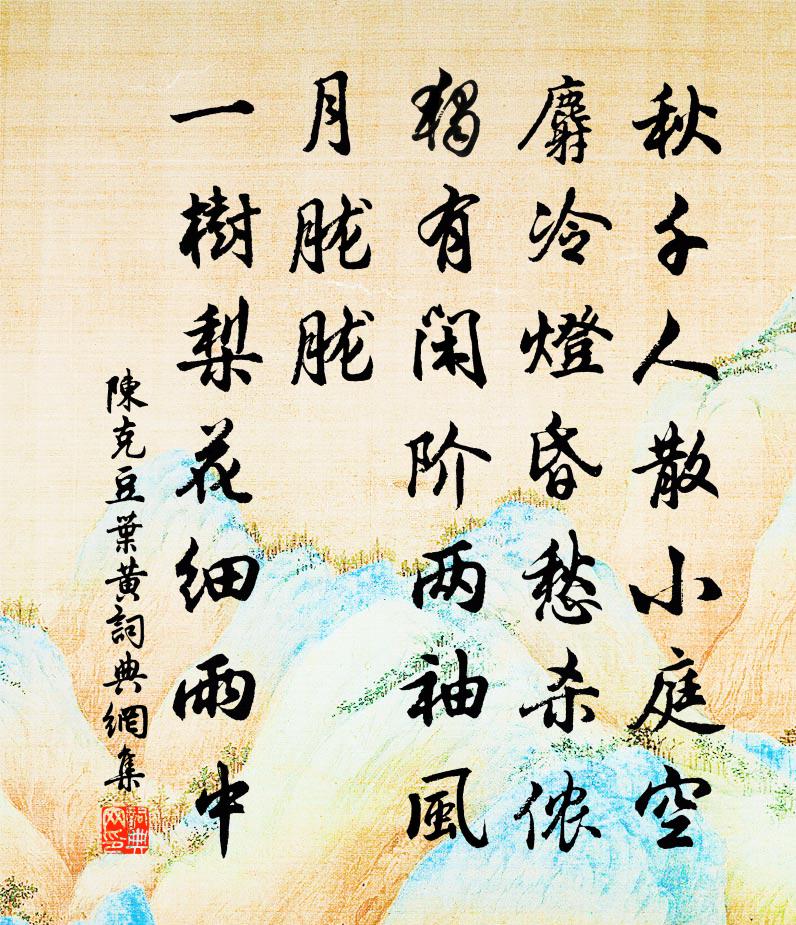 秋千人散小庭空
麝冷燈昏愁杀侬
獨有闲阶两袖風
月朧朧
一樹梨花细雨中
陳克豆葉黄詞典網集